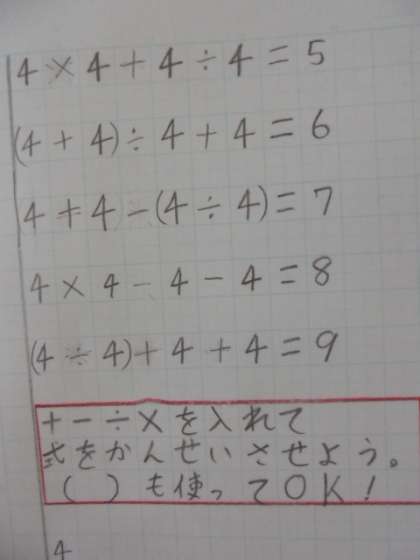 4 × 4 + 4 ÷ 4 = 5
(4 + 4) ÷ 4 + 4 = 6
4 + 4 - (4 ÷ 4) = 7
4 × 4 - 4 - 4 = 8
(4 ÷ 4) + 4 + 4 = 9
+ - ÷ × を入れて
式をかんせいさせよう。
( ) も使ってOK!
4